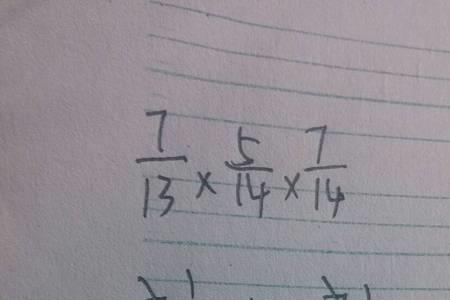 7/13 × 5/14 × 7/14